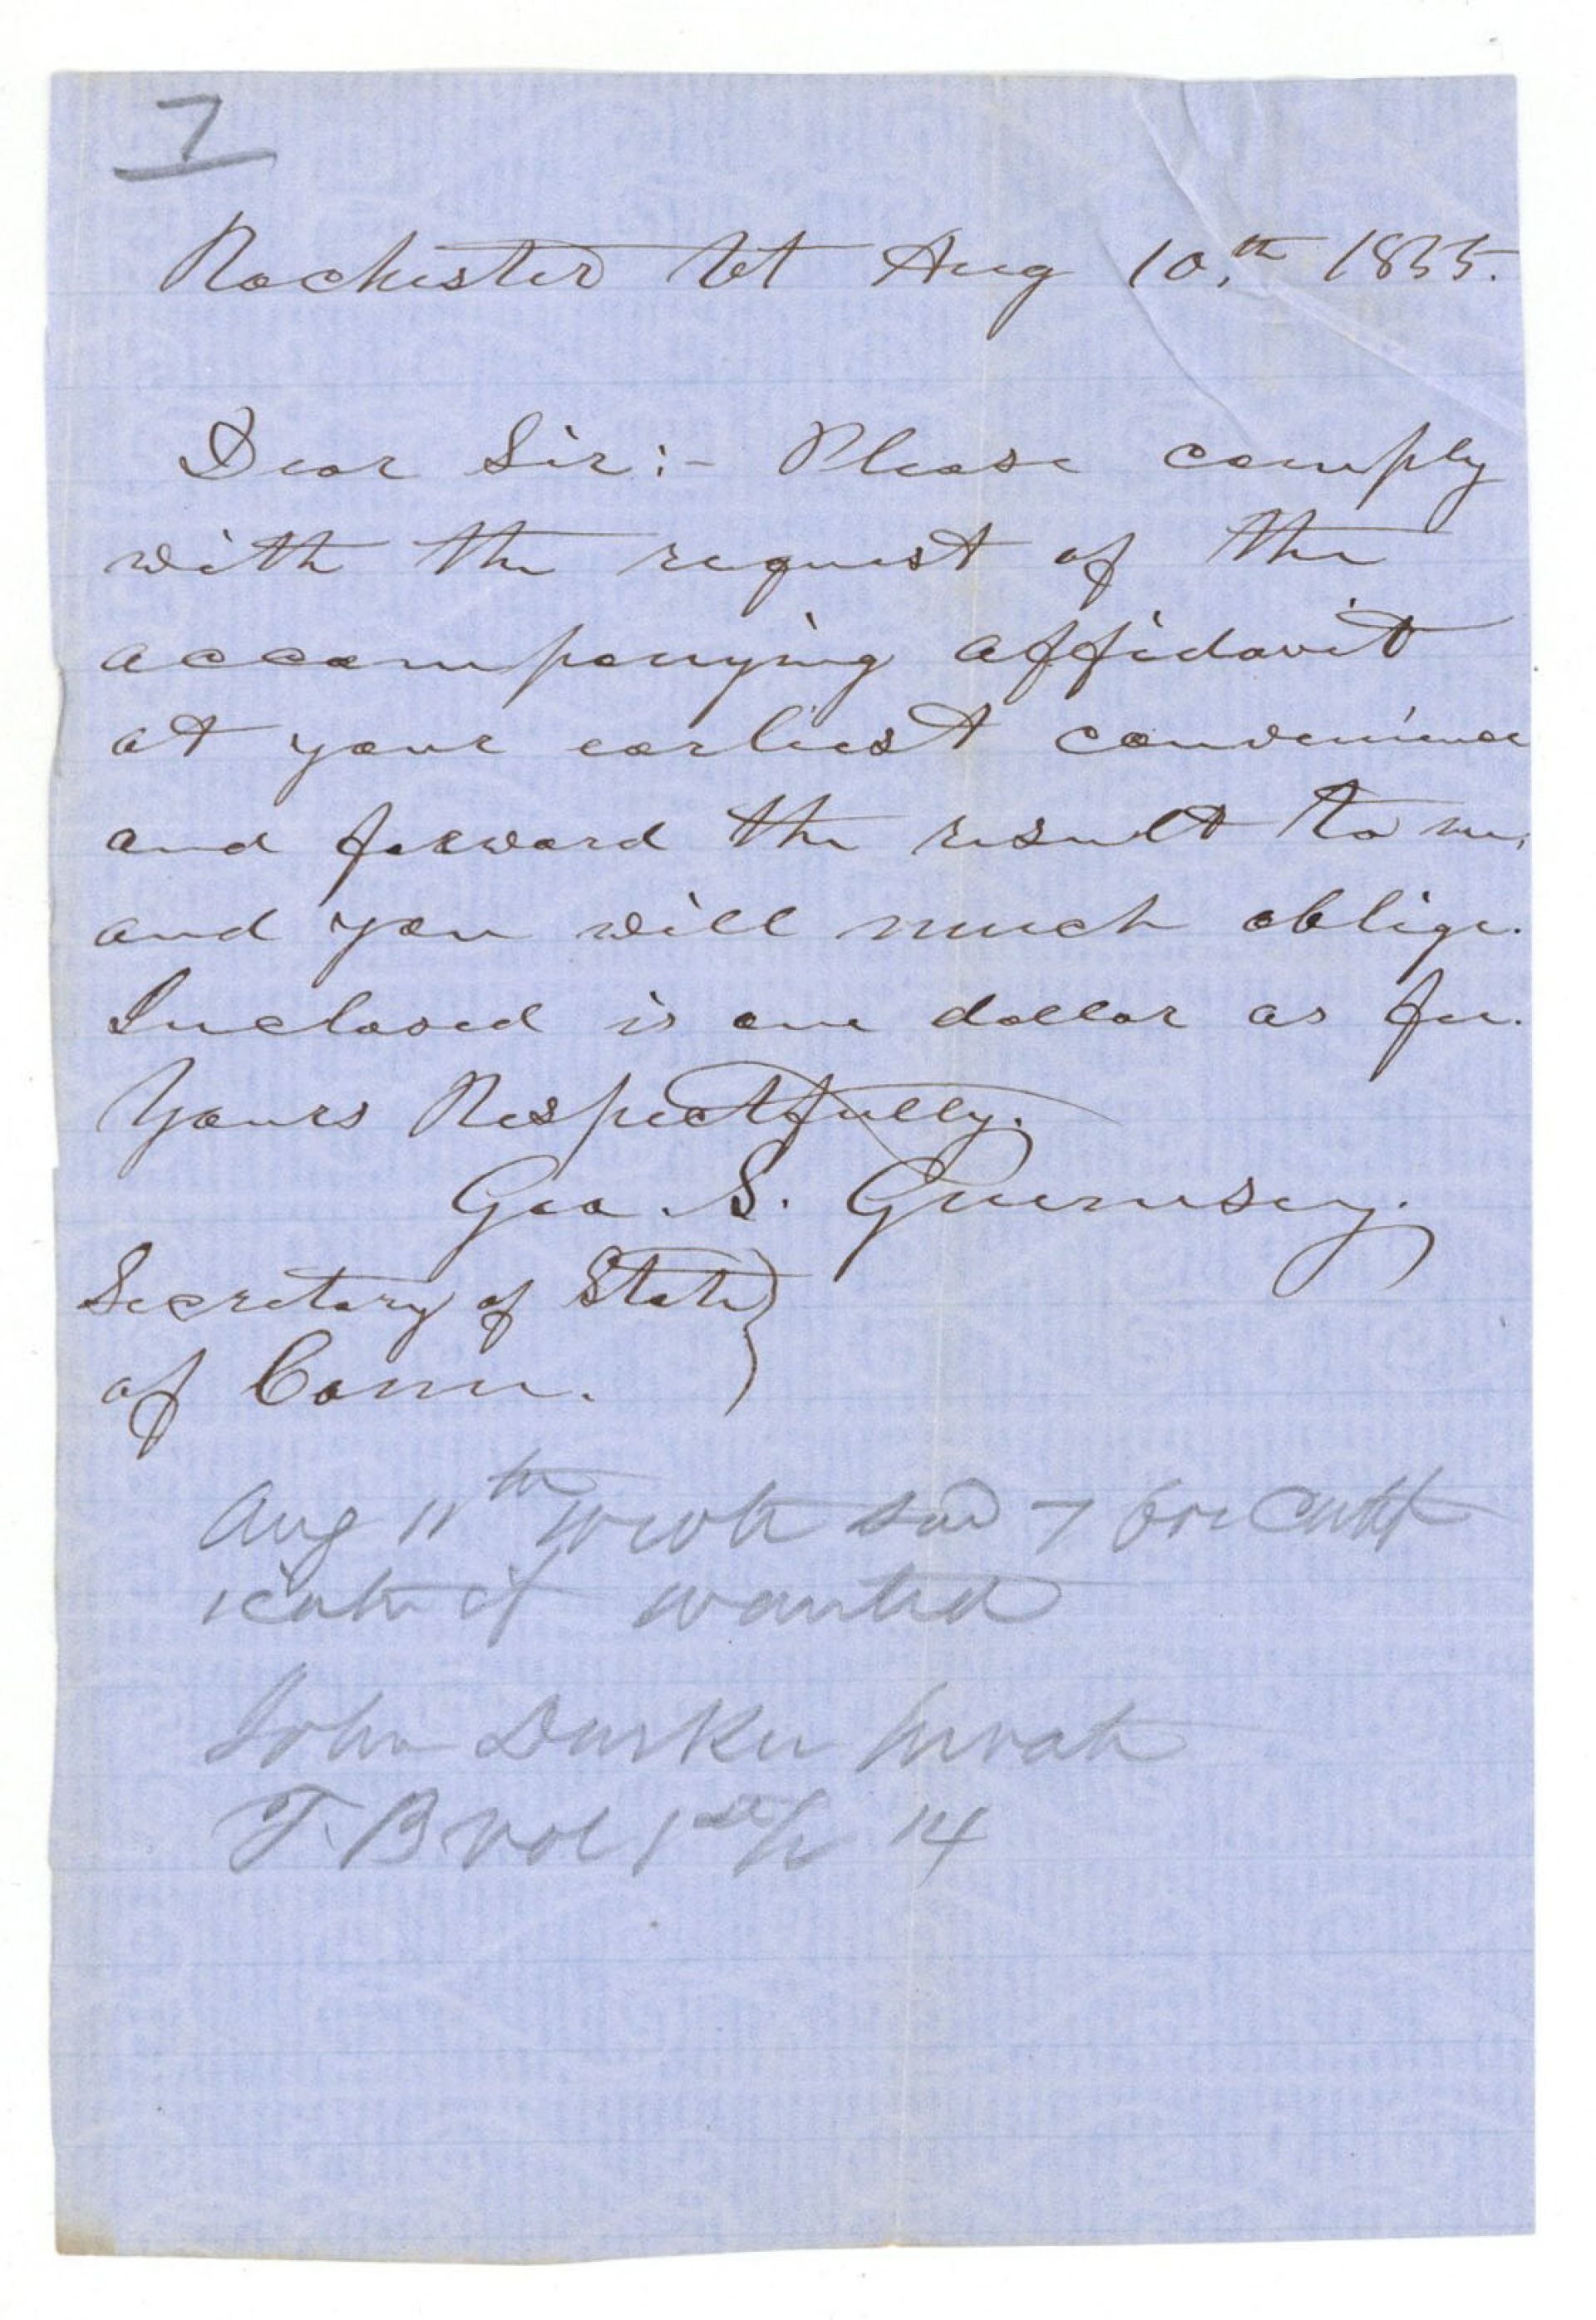 7
Rochester Vt Aug 10.th 1855.
Dear Sir:- Please comply
with the request of the
accompanying affidavit
at your earliest convenience
and forward the result to me,
and you will much oblige.
Inclosed is one dollar as fee.
Yours Respectfully.
Geo. S. Guernsey.
Secretary of State
of Conn.
Aug 11th wrote 7 for Certif
icate if wanted
John Durkee private
T. B vol 1st p 14